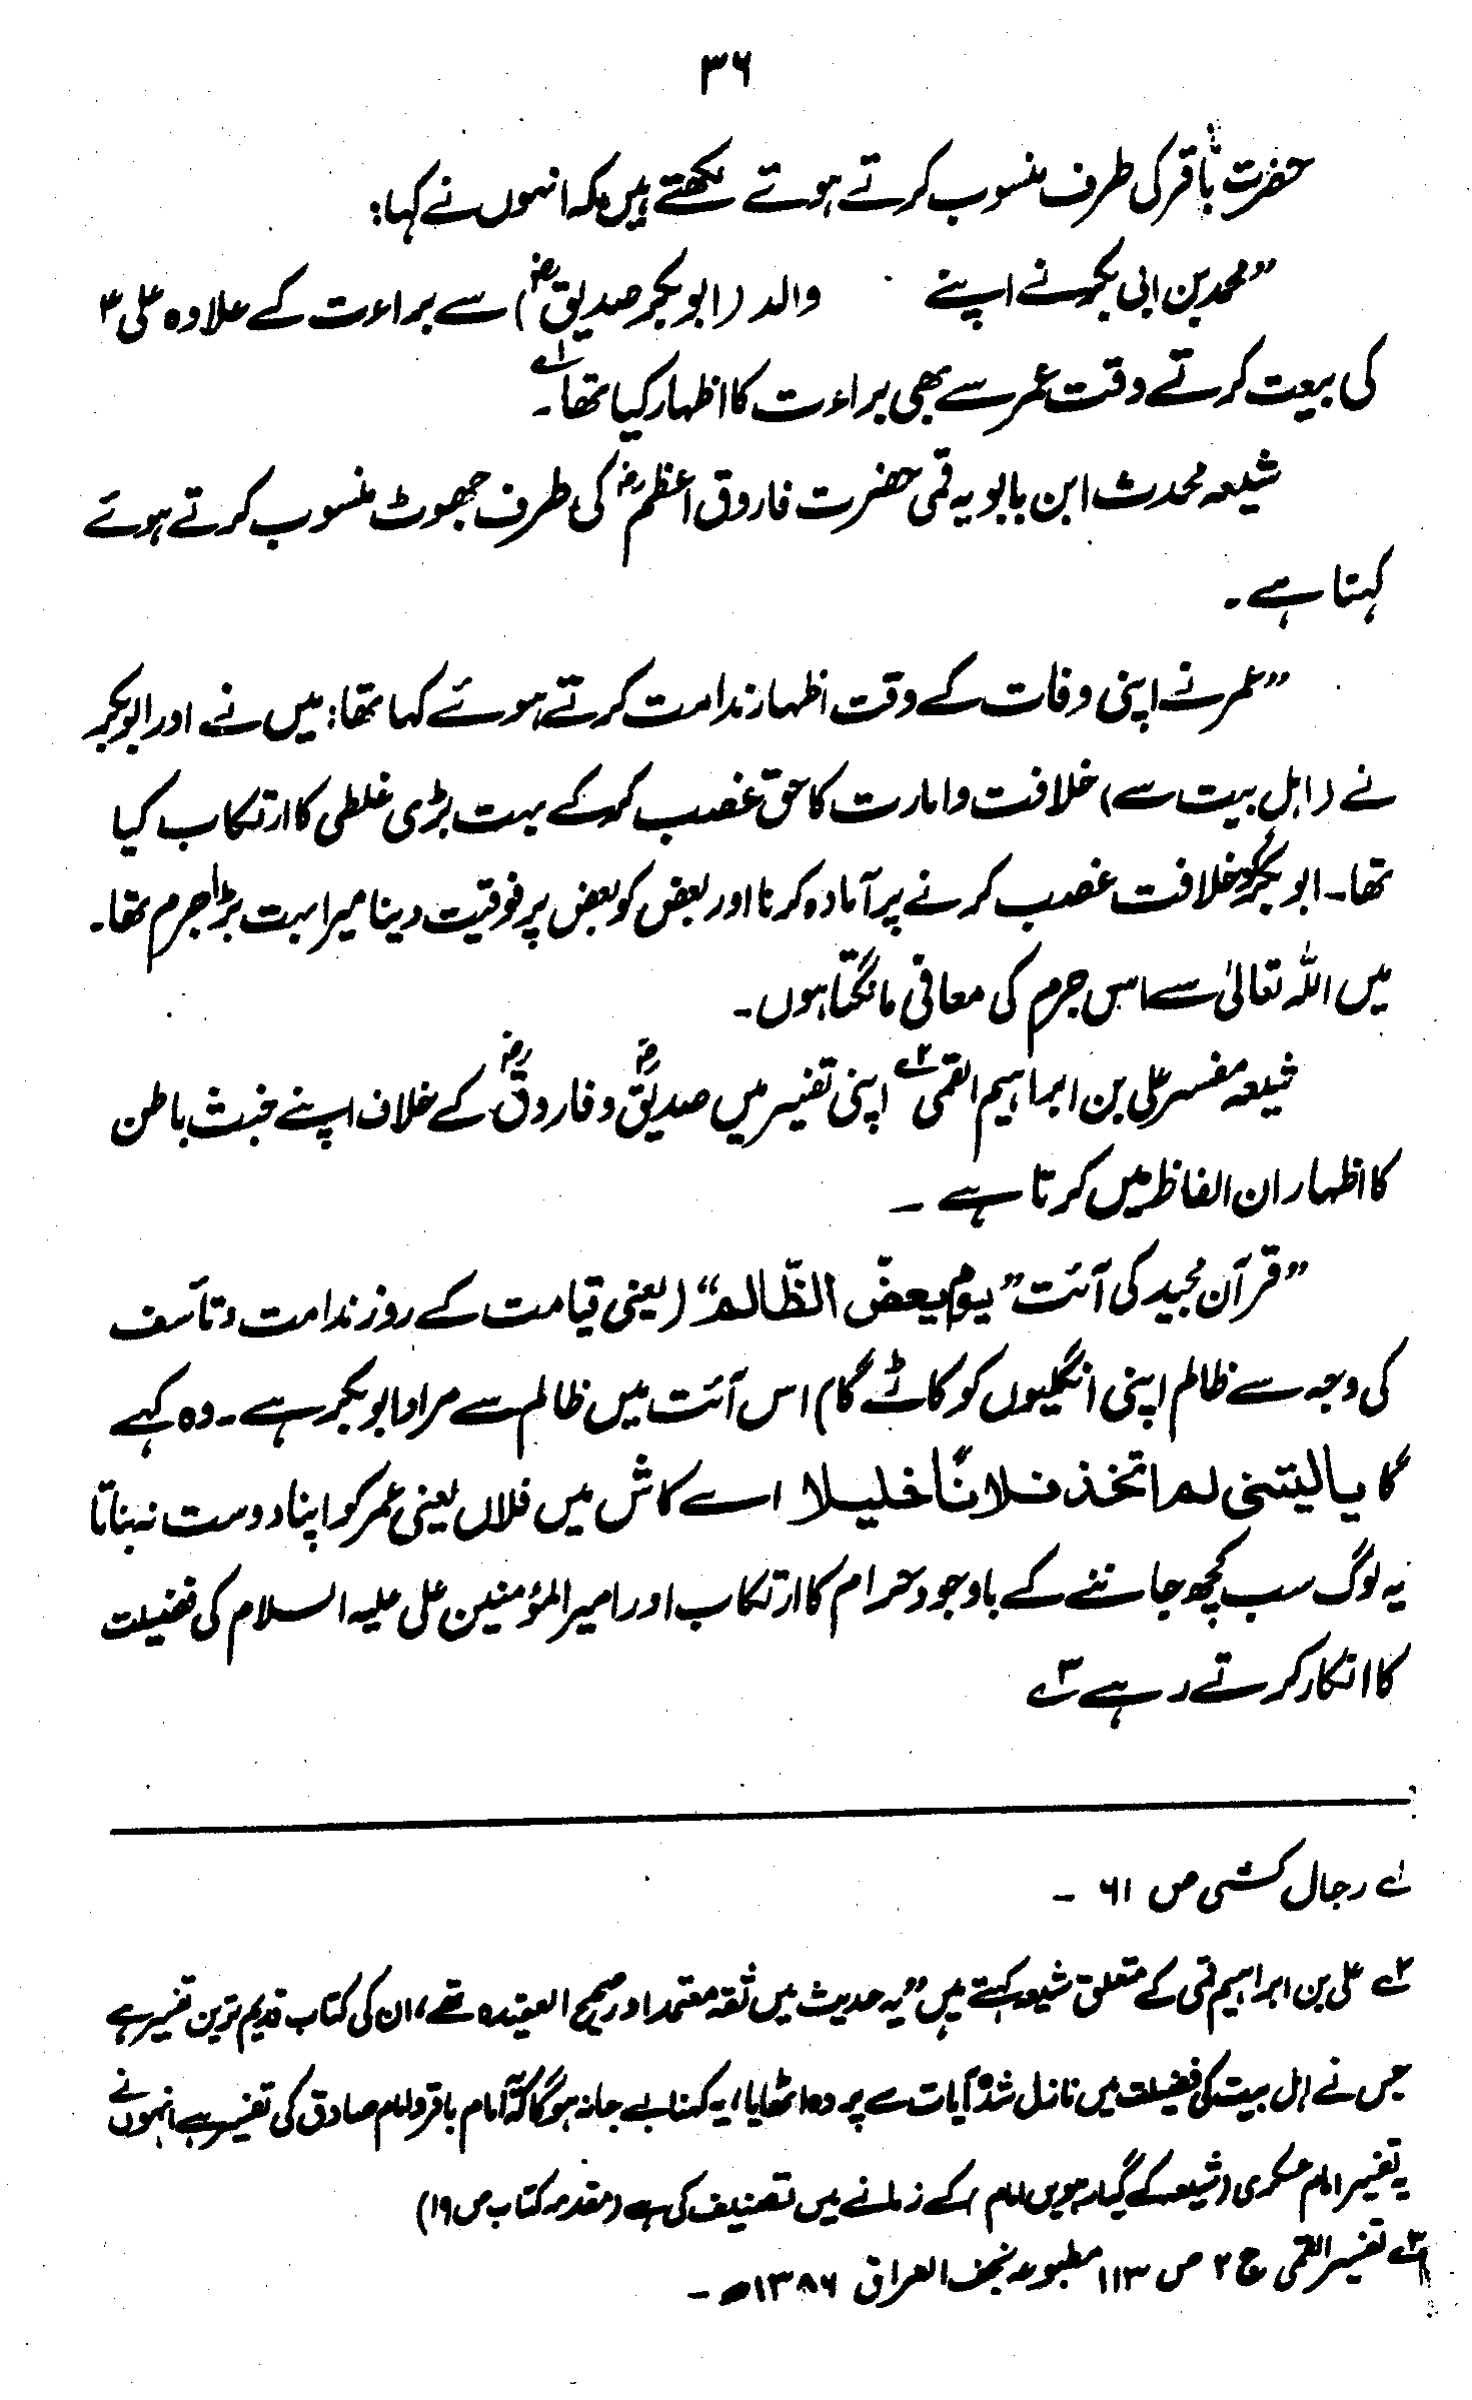 ۳۶
حضرت باقر کی طرف منسوب کرتے ہوتے لکھتے ہیں کہ انہوں نے کہا:
”محمد بن ابی بکر نے اپنے والد (ابوبکر صدیقؓ) سے براءت کے علاوہ علی ۴
کی بیعت کرتے وقت عمر سے بھی براءت کا اظہار کیا تھا ۱ے۔
شیعہ محدث ابن بابویہ قمی حضرت فاروق اعظمؓ کی طرف جھوٹ منسوب کرتے ہوئے
کہتا ہے۔
”عمر نے اپنی وفات کے وقت اظہار ندامت کرتے ہوئے کہا تھا: میں نے اور ابوبکر
نے (اہل بیت سے) خلافت و امارت کا حق غصب کر کے بہت بڑی غلطی کا ارتکاب کیا
تھا۔ ابوبکر کو خلافت غصب کرنے پر آمادہ کرنا اور بعض کو بعض پر فوقیت دینا میرا بہت بڑا جرم تھا۔
میں اللہ تعالیٰ سے اس جرم کی معافی مانگتا ہوں۔
شیعہ مفسر علی بن ابراہیم القمی ۲ے اپنی تفسیر میں صدیقؓ و فاروقؓ کے خلاف اپنے خبث باطن
کا اظہار ان الفاظ میں کرتا ہے ۔
”قرآن مجید کی آئت ”یوم یعضّ الظّالم“ (یعنی قیامت کے روز ندامت و تأسف
کی وجہ سے ظالم اپنی انگلیوں کو کاٹے گا) اس آئت میں ظالم سے مراد ابوبکر ہے۔ وہ کہے
گا یالیتنی لم اتخذ فلانًا خلیلا اے کاش میں فلاں یعنی عمر کو اپنا دوست نہ بناتا
یہ لوگ سب کچھ جاننے کے باوجود حرام کا ارتکاب اور امیر المؤمنین علی علیہ السلام کی فضیلت
کا انکار کرتے رہے ۳ے
۱ے رجال کشی ص ۶۱ ۔
۲ے علی بن ابراہیم قمی کے متعلق شیعہ کہتے ہیں ”یہ حدیث میں ثقہ معتمد اور صحیح العقیدہ تھے، ان کی کتاب قدیم ترین تفسیر ہے
جس نے اہل بیت کی فضیلت میں نازل شدہ آیات سے پردہ اٹھایا، یہ کہنا بے جا نہ ہوگا کہ امام باقر و امام صادق کی تفسیر ہے انہوں نے
یہ تفسیر امام عسکری (شیعہ کے گیارہویں امام) کے زمانے میں تصنیف کی ہے (مقدمہ کتاب ص ۱۹)
۳ے تفسیر القمی ج ۲ ص ۱۱۳ مطبوعہ نجف العراق ۱۳۸۶ھ ۔